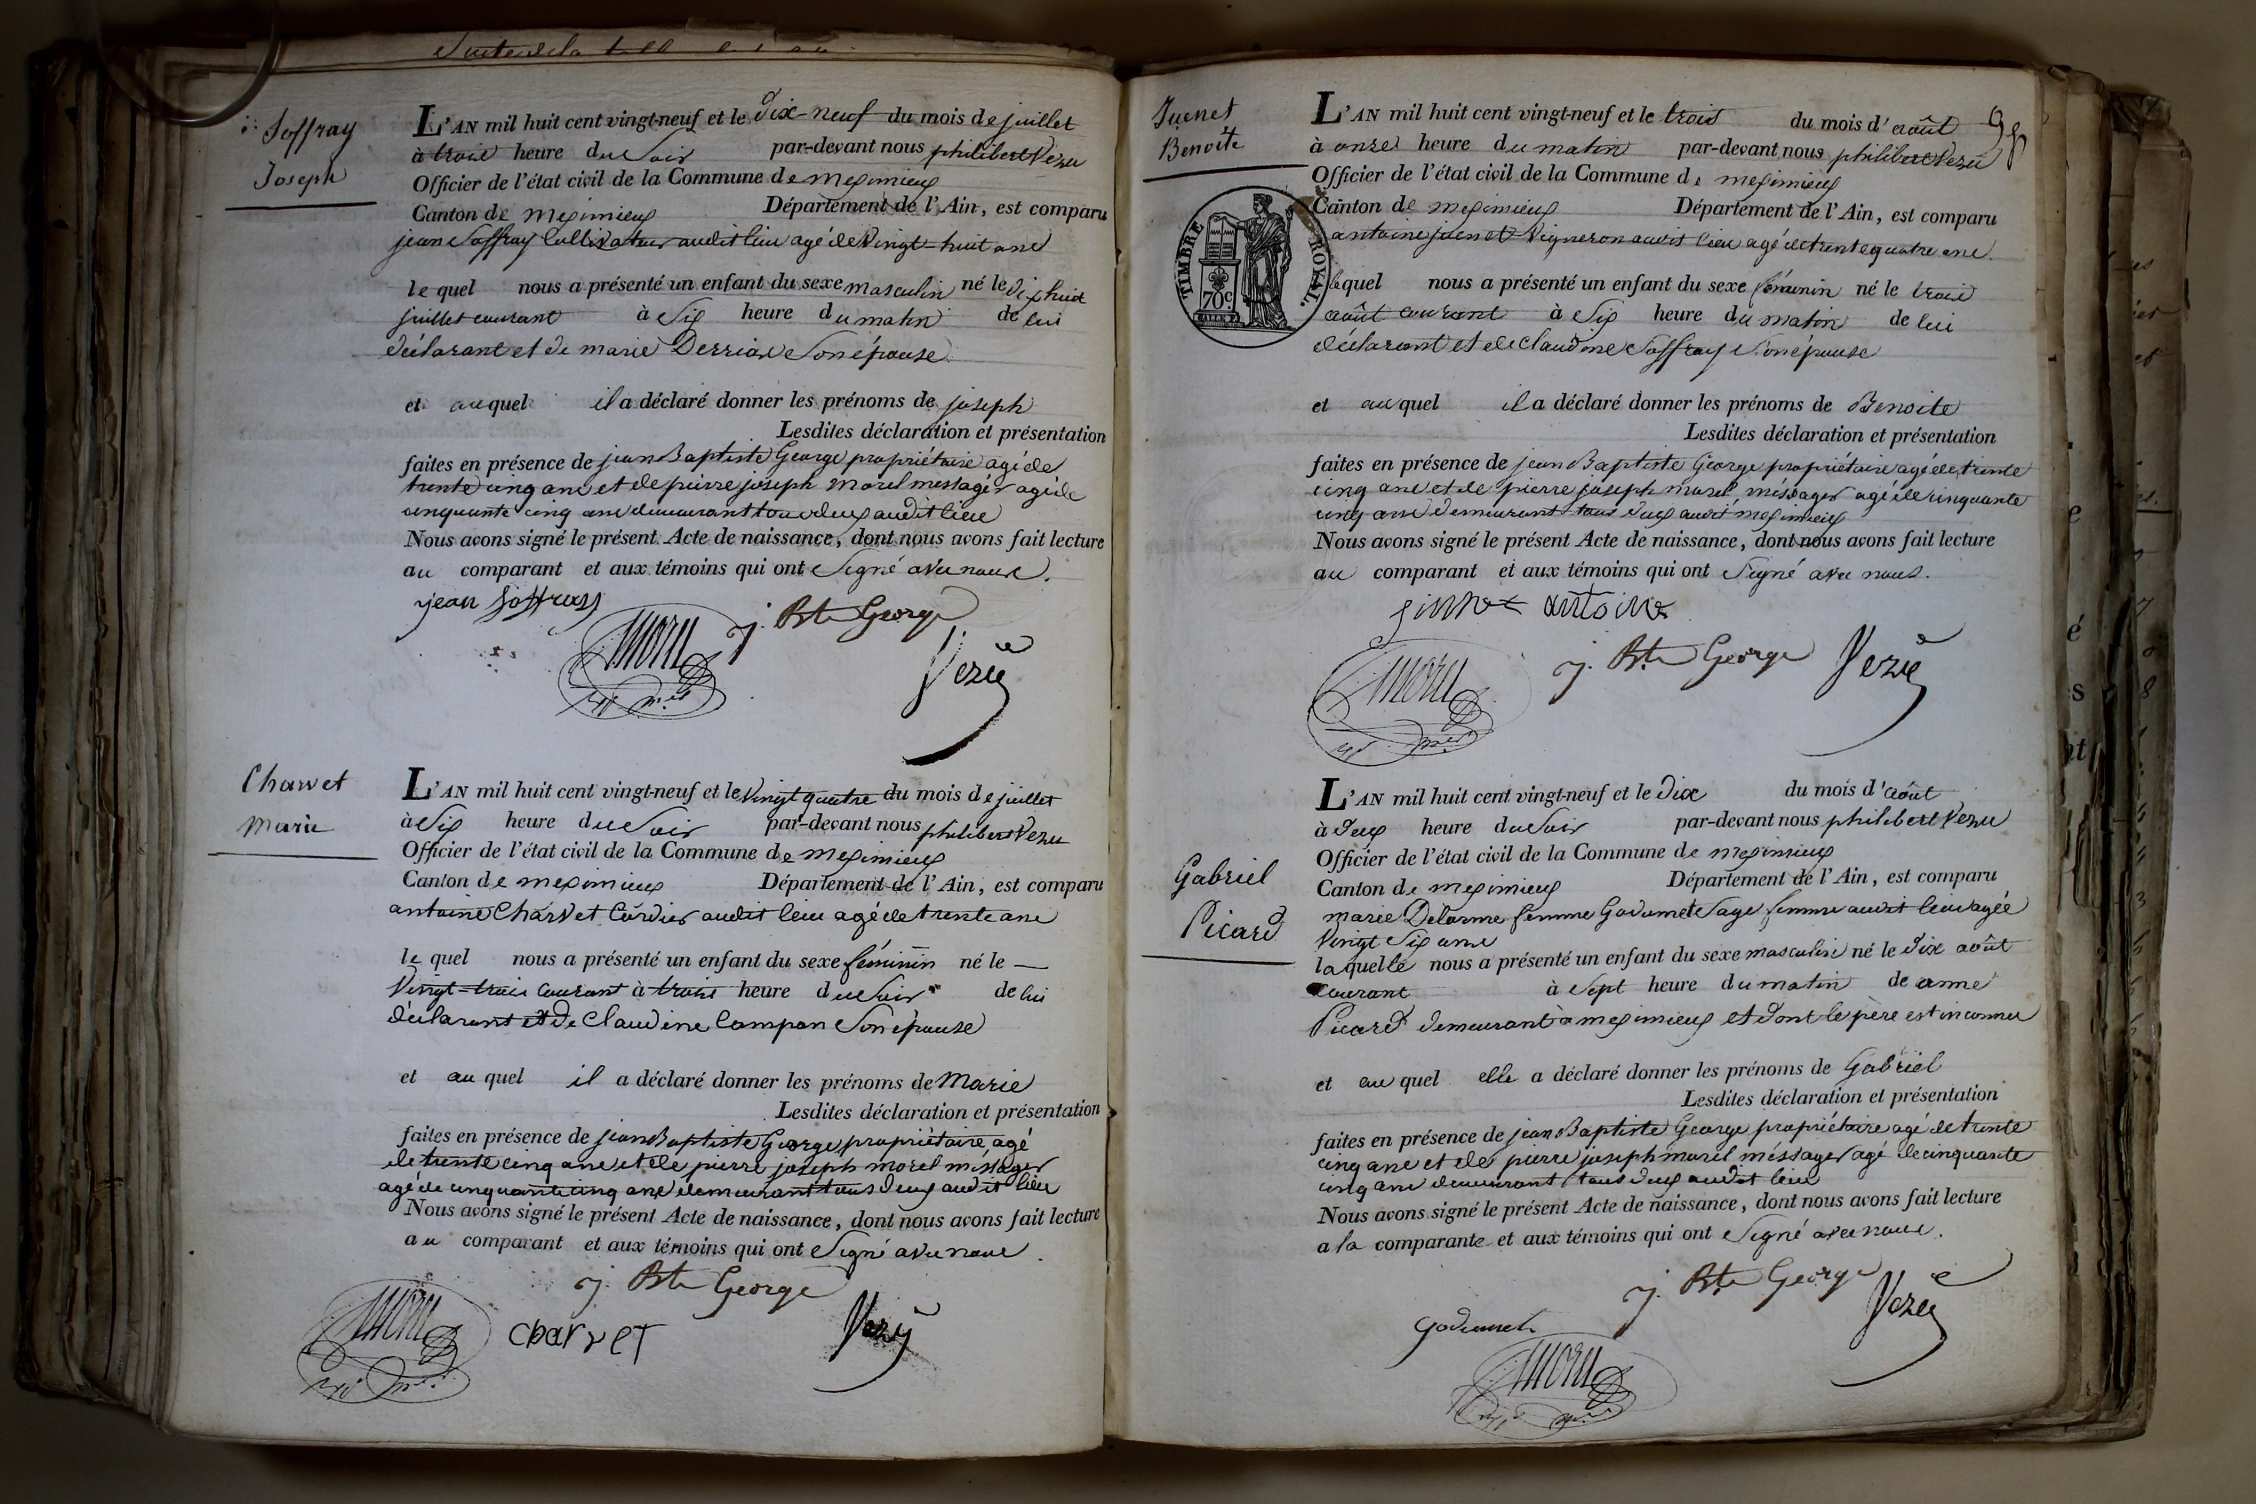 Soffray
Joseph
L'AN mil huit cent vingt-neuf et le Dix-neuf du mois de juillet
à trois heure du Soir par-devant nous philibert Vezu
Officier de l'état civil de la Commune de meximieux
Canton de meximieux Département de l'Ain, est comparu
jean Soffray Cultivateur audit lieu agé de Vingt-huit ans
le quel nous a présenté un enfant du sexe masculin né le dix huit
juillet courant à Six heure du matin de lui
déclarant et de marie Derriaz Son épouse
et au quel il a déclaré donner les prénoms de joseph
Lesdites déclaration et présentation
faites en présence de jean Baptiste George propriétaire agé de
trente cinq ans et de pierre joseph morel messager agé de
cinquante cinq ans demeurant tous deux audit lieu
Nous avons signé le présent Acte de naissance, dont nous avons fait lecture
au comparant et aux témoins qui ont Signé avec nous.
jean Soffray
morel
j. Bte George
Vezu
Charvet
Marie
L'AN mil huit cent vingt-neuf et le Vingt quatre du mois de juillet
à Six heure du Soir par-devant nous philibert Vezu
Officier de l'état civil de la Commune de meximieux
Canton de meximieux Département de l'Ain, est comparu
antoine Charvet Cordier audit lieu agé de trente ans
le quel nous a présenté un enfant du sexe féminin né le
Vingt-trois Courant à trois heure du Soir de lui
déclarant et de Claudine Campan Son épouse
et au quel il a déclaré donner les prénoms de Marie
Lesdites déclaration et présentation
faites en présence de jean Baptiste George propriétaire agé
de trente cinq ans et de pierre joseph morel méssager
agé de cinquante cinq ans demeurant tous deux audit lieu
Nous avons signé le présent Acte de naissance, dont nous avons fait lecture
au comparant et aux témoins qui ont Signé avec nous.
j. Bte George
morel
charvet
Vezu
98
Juenet
Benoite
TIMBRE ROYAL.
70c
L'AN mil huit cent vingt-neuf et le trois du mois d'août
à onze heure du matin par-devant nous philibert Vezu
Officier de l'état civil de la Commune de meximieux
Canton de meximieux Département de l'Ain, est comparu
antoine juenet Vigneron audit lieu agé de trente quatre ans
lequel nous a présenté un enfant du sexe féminin né le trois
août courant à Six heure du matin de lui
déclarant et de claudine Soffray Son épouse
et au quel il a déclaré donner les prénoms de Benoite
Lesdites déclaration et présentation
faites en présence de jean Baptiste George propriétaire agé de trente
cinq ans et de pierre joseph morel méssager agé de cinquante
cinq ans demeurant tous deux audit meximieux
Nous avons signé le présent Acte de naissance, dont nous avons fait lecture
au comparant et aux témoins qui ont Signé avec nous.
juenet antoine
morel
j. Bte George
Vezu
Gabriel
Picard
L'AN mil huit cent vingt-neuf et le Dix du mois d'août
à deux heure du Soir par-devant nous philibert Vezu
Officier de l'état civil de la Commune de meximieux
Canton de meximieux Département de l'Ain, est comparu
marie Delorme femme Godumet Sage femme audit lieu agée
Vingt Six ans
laquelle nous a présenté un enfant du sexe masculin né le Dix août
courant à Sept heure du matin de anne
Picard demeurant à meximieux et dont le père est inconnu
et au quel elle a déclaré donner les prénoms de Gabriel
Lesdites déclaration et présentation
faites en présence de jean Baptiste George propriétaire agé de trente
cinq ans et de pierre joseph morel méssager agé de cinquante
cinq ans demeurant tous deux audit lieu
Nous avons signé le présent Acte de naissance, dont nous avons fait lecture
a la comparante et aux témoins qui ont Signé avec nous.
j. Bte George
Vezu
morel